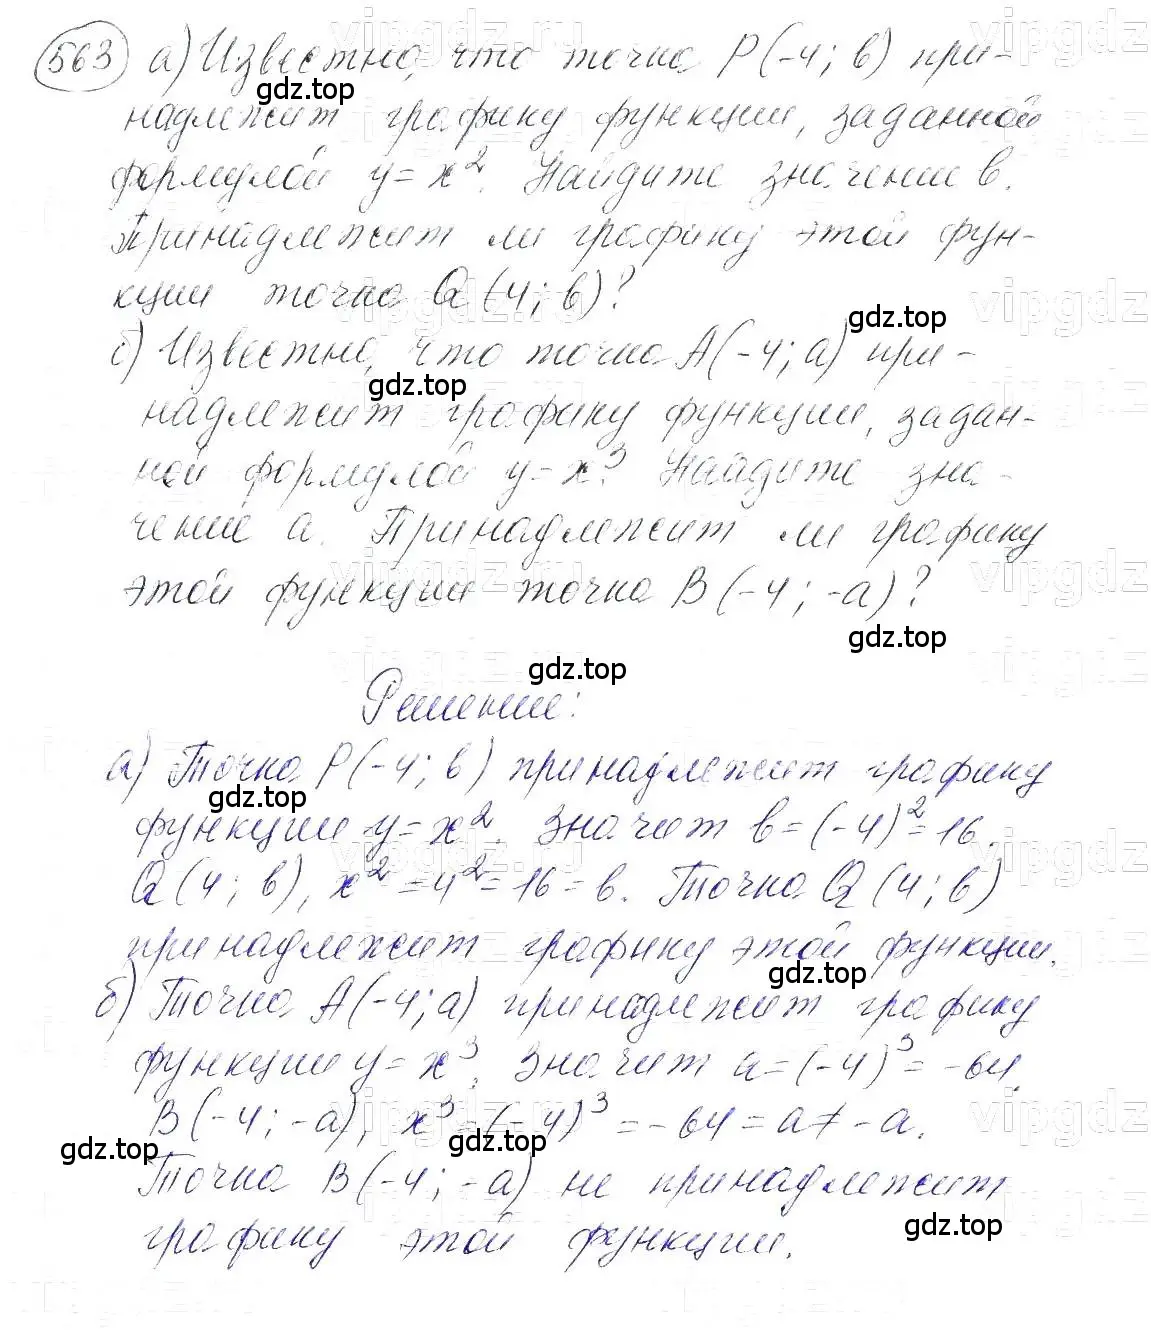 563 а) Известно, что точка P(-4; b) при-
надлежит графику функции, заданной
формулой y = x². Найдите значение b.
Принадлежит ли графику этой фун-
кции точка Q (4; b)?
б) Известно, что точка A(-4; a) при-
надлежит графику функции, задан-
ной формулой y = x³. Найдите зна-
чение a. Принадлежит ли графику
этой функции точка B (-4; -a)?
Решение:
а) Точка P(-4; b) принадлежит графику
функции y = x². Значит b = (-4)² = 16.
Q (4; b), x² = 4² = 16 = b. Точка Q (4; b)
принадлежит графику этой функции.
б) Точка A(-4; a) принадлежит графику
функции y = x³. Значит a = (-4)³ = -64.
B(-4; -a), x³ = (-4)³ = -64 = a ≠ -a.
Точка B(-4; -a) не принадлежит
графику этой функции.
gdz.top
gdz.top
gdz.top
gdz.top
gdz.top
gdz.top
gdz.top
gdz.top
gdz.top
gdz.top
vipgdz